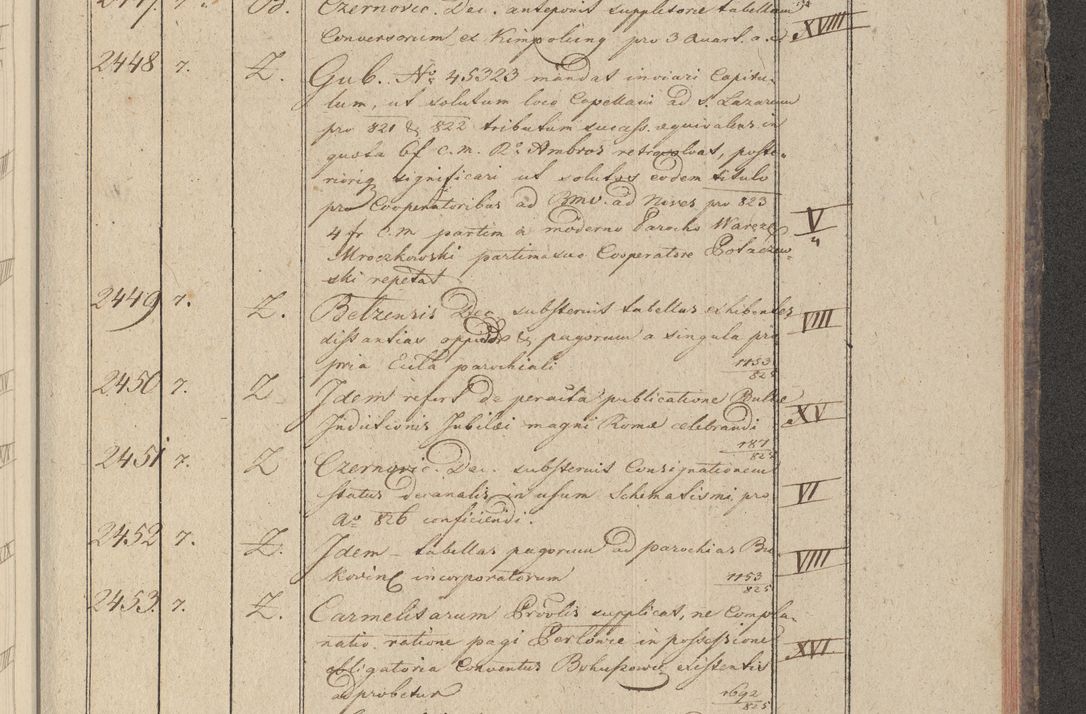 2447. 7. B. Czernovic. Dec. anteponit suppletorie tabellam
Conversorum ex Kimpolung pro 3 Quart. a. c. XVIII
2448 7. Z. Gub. No 45323 mandat inviari Capitu-
lum, ut solutum loco Capellani ad S. Lazarum
pro 821 & 822 tributum success. aequivalens in
quota 6f c.m. Rdo Ambros retrosolvat, poste-
riorig significari ut solutos eodem titulo
pro Cooperatoribus ad Bmv. ad Nives pro 823
4 fr c.m partim a moderno Parocho Warez V/4
Mroczkowski partim a suo Cooperatore
ski repetat
2449 7. Z. Belzensis Dec. substernit tabellas exhibentes
distantias oppidor & pagorum a singula pro VIII
pria Eccla parochiali 1153/825
2450 7. Z Idem refert de peracta publicatione Bullae
Indictionis Jubilaei magni Romae celebrandi a XV
187/825
2451 7. Z Czernovic. Dec. substernit Consignationem
status decanalis in usum Schematismi pro VI
Ao 826 conficiendi.
2452 7. Z. Idem – tabellas pagorum ad parochias Bu-
kovinae incorporatorum 1153/825 VIII
2453. 7. Z. Carmelitarum Provlis supplicat, ne Compla-
natio ratione pagi in possessione
obligatoria Conventus existentis XVI
adprobetur 1692/825